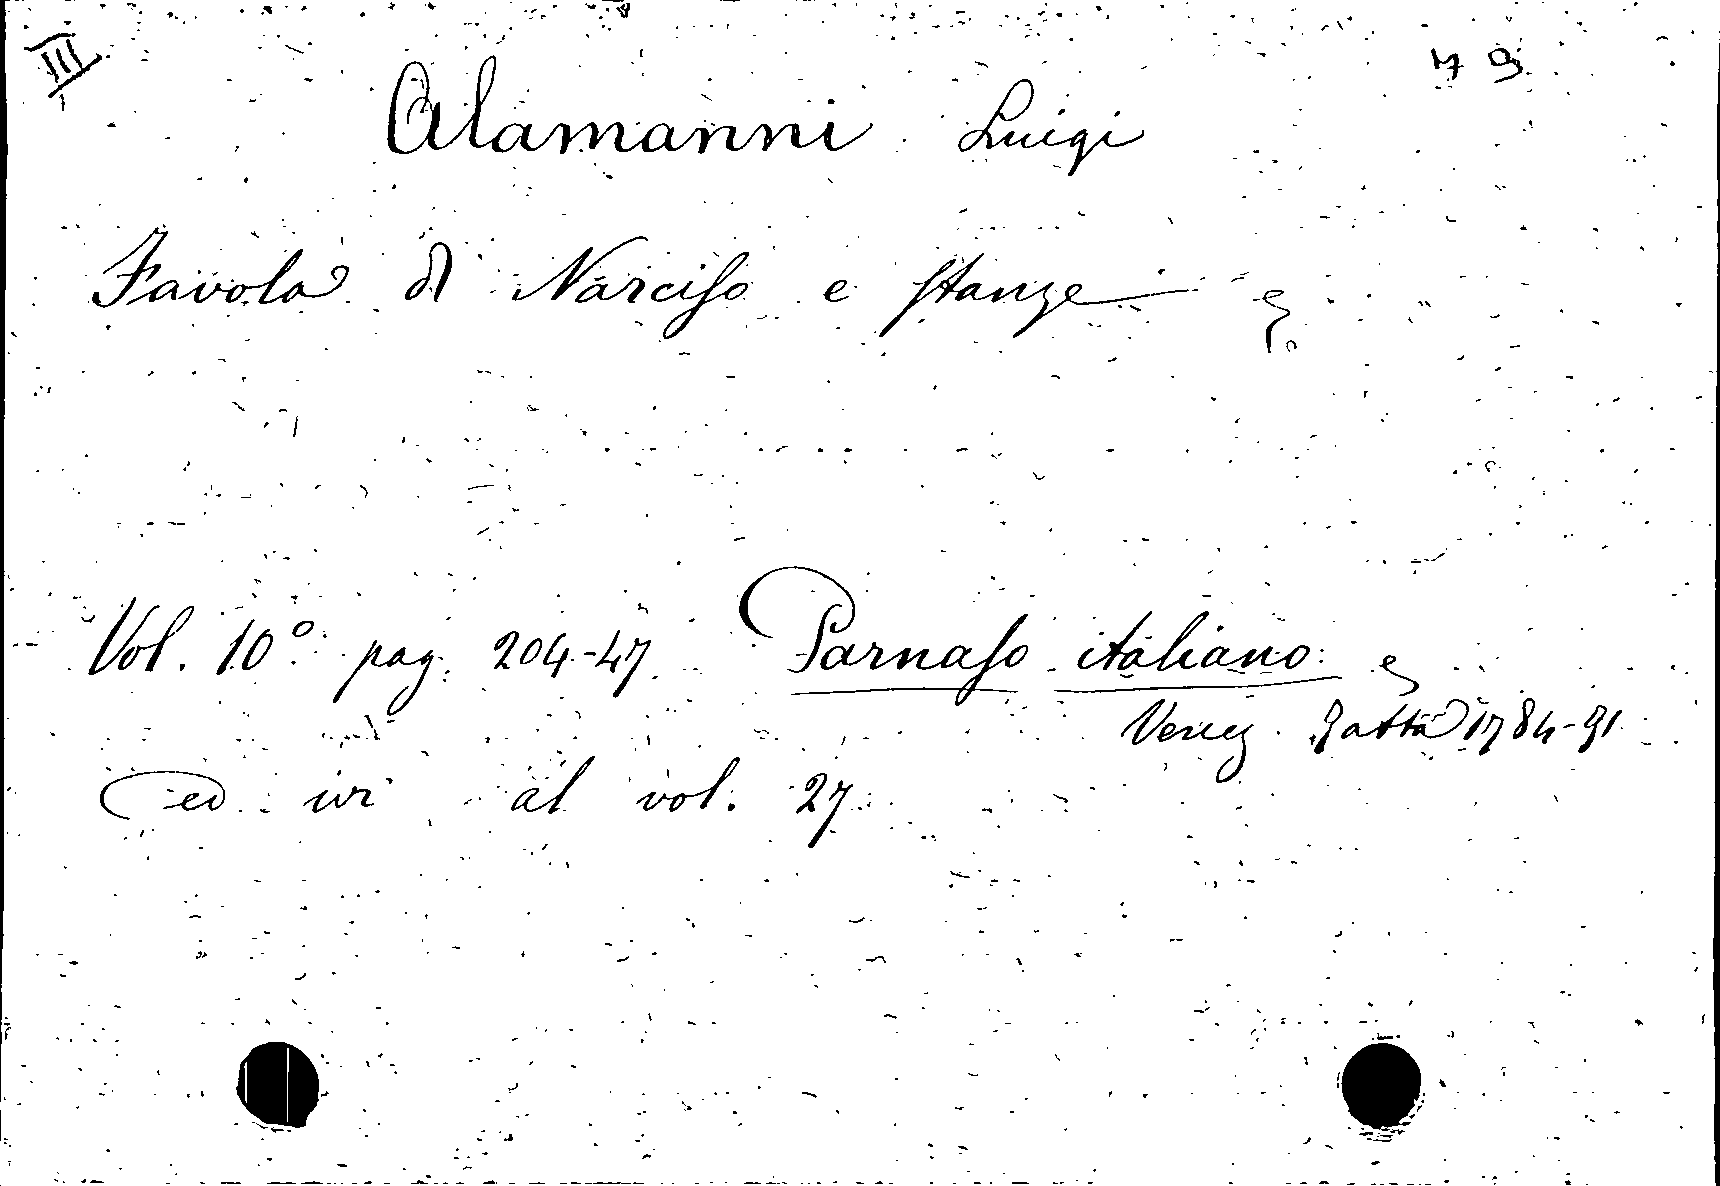 III
79
Alamanni Luigi
Favola di Narciso e stanze
Vol. 10° pag. 204-47 Parnaso italiano
Venez. Zatta 1784-91
ed ivi al vol. 27